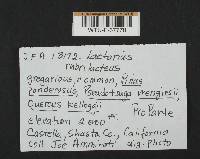 WTU-F-67778
JFA 13172. Lactarius
rubrilacteus
gregarious, common, Pinus
ponderosa, Pseudotsuga menziesii,
Quercus kelloggii ProParte
elevation 2000'
Castella, Shasta Co., California
Coll Joe Ammirati dig. Photo